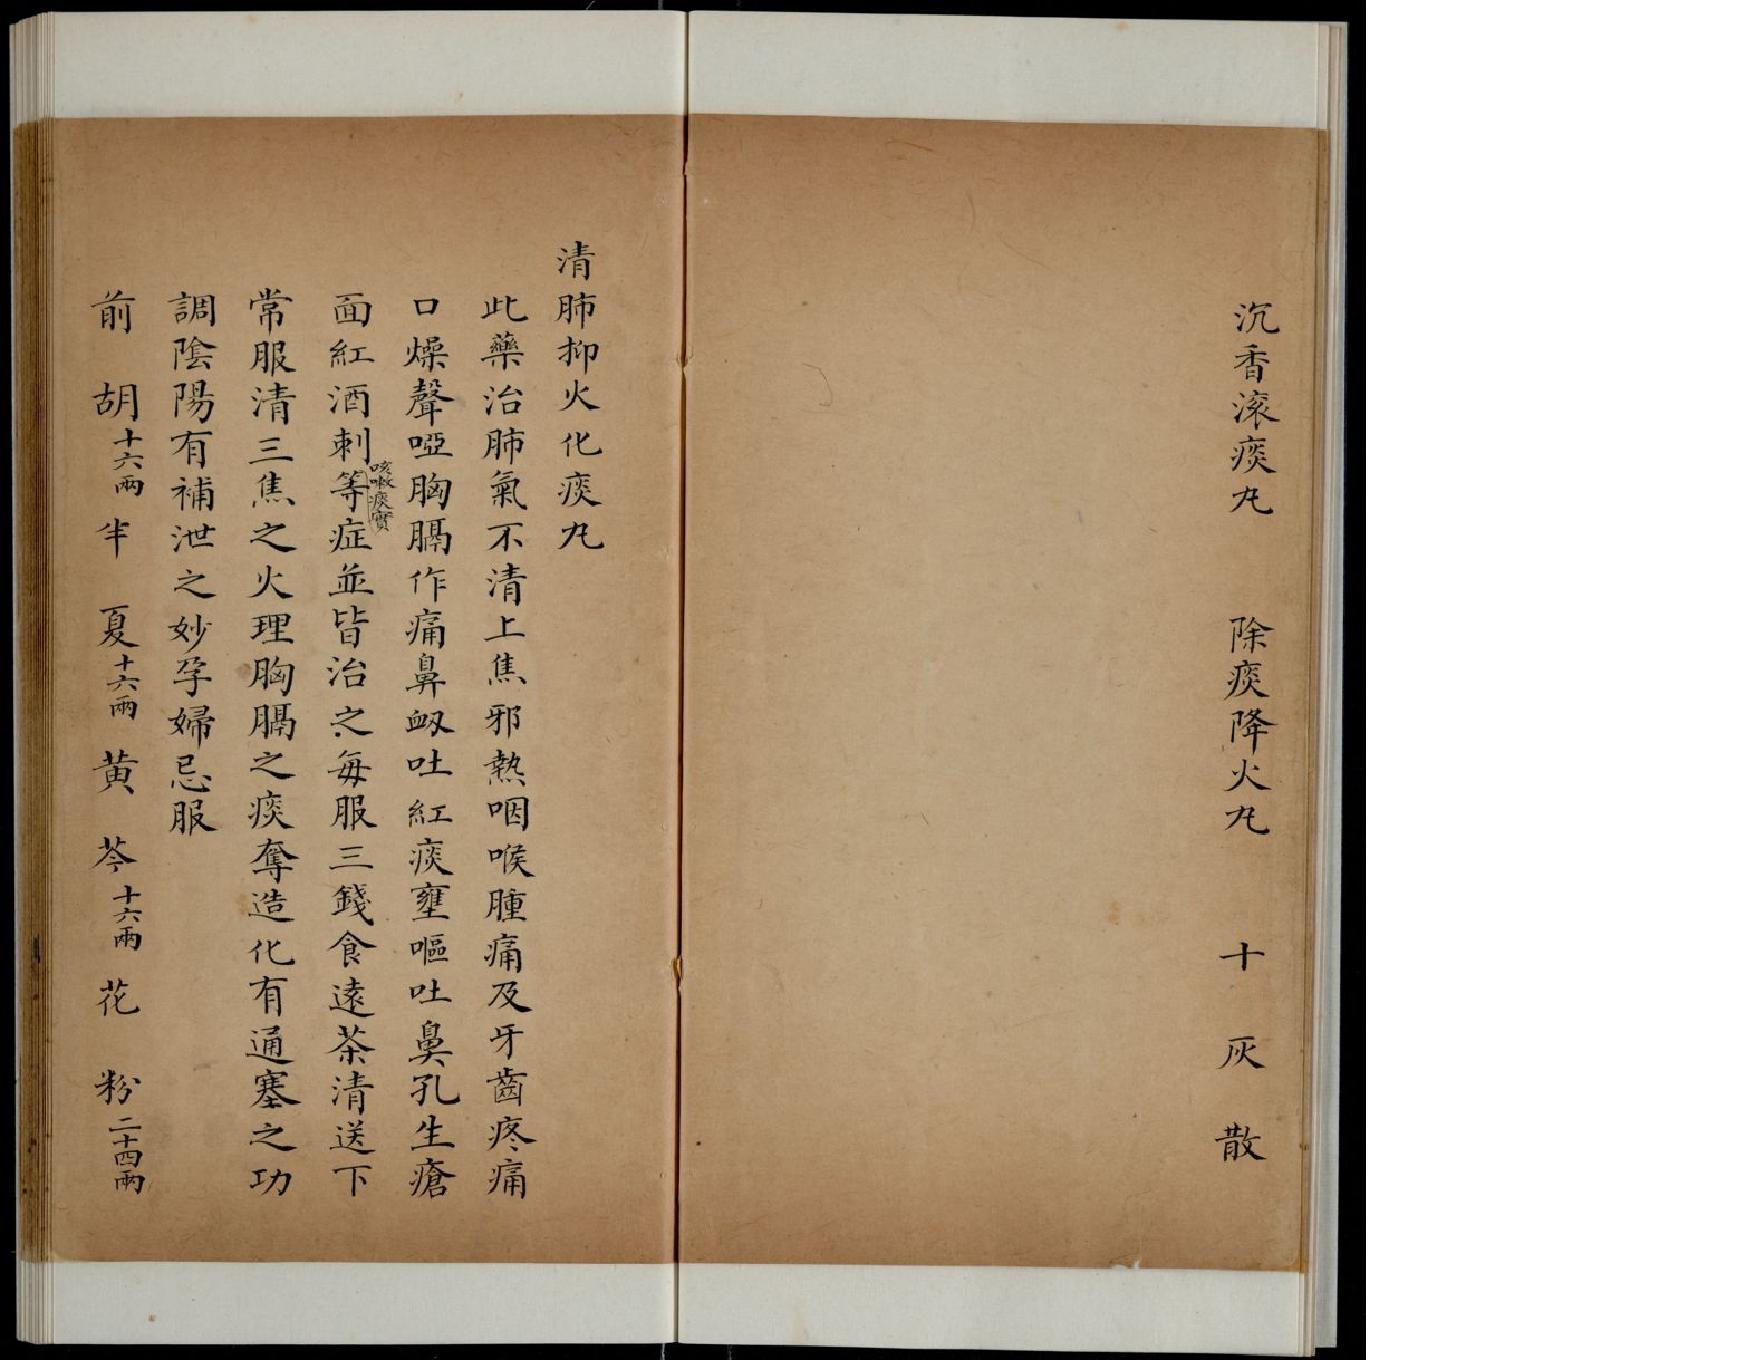 沉香滚痰丸　除痰降火丸　十灰散
清肺抑火化痰丸
此藥治肺氣不清上焦邪熱咽喉腫痛及牙齒疼痛
口燥聲啞胸膈作痛鼻衂吐紅痰壅嘔吐鼻孔生瘡
面紅酒刺等症並皆治之每服三錢食遠茶清送下
咳嗽痰實
常服清三焦之火理胸膈之痰奪造化有通塞之功
調陰陽有補泄之妙孕婦忌服
前胡十六兩半夏十六兩黃芩十六兩花粉二十四兩